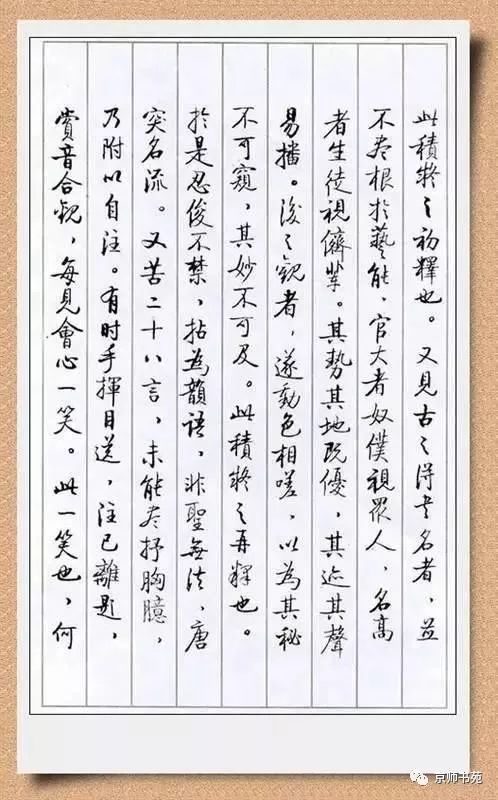 此積疑之初釋也。又見古之得书名者，並
不尽根於藝能，官大者奴僕視眾人，名高
者生徒視儕輩。其勢其地既優，其迹其聲
易播。後之觀者，遂動色相嗟，以為其秘
不可窺，其妙不可及。此積疑之再釋也。
於是忍俊不禁，拈為韻語，非聖無法，唐
突名流。又苦二十八言，未能尽抒胸臆，
乃附以自注。有时手揮目送，注已離題，
賞音合觀，每見會心一笑。此一笑也，何
京师书苑